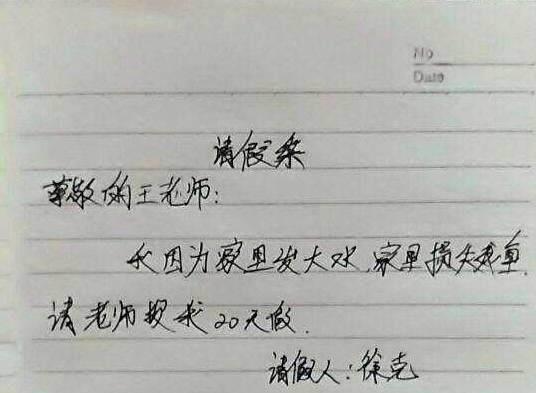 No
Date
请假条
尊敬的王老师：
我因为家里发大水，家里损失严重，
请老师批我20天假.
请假人：徐克